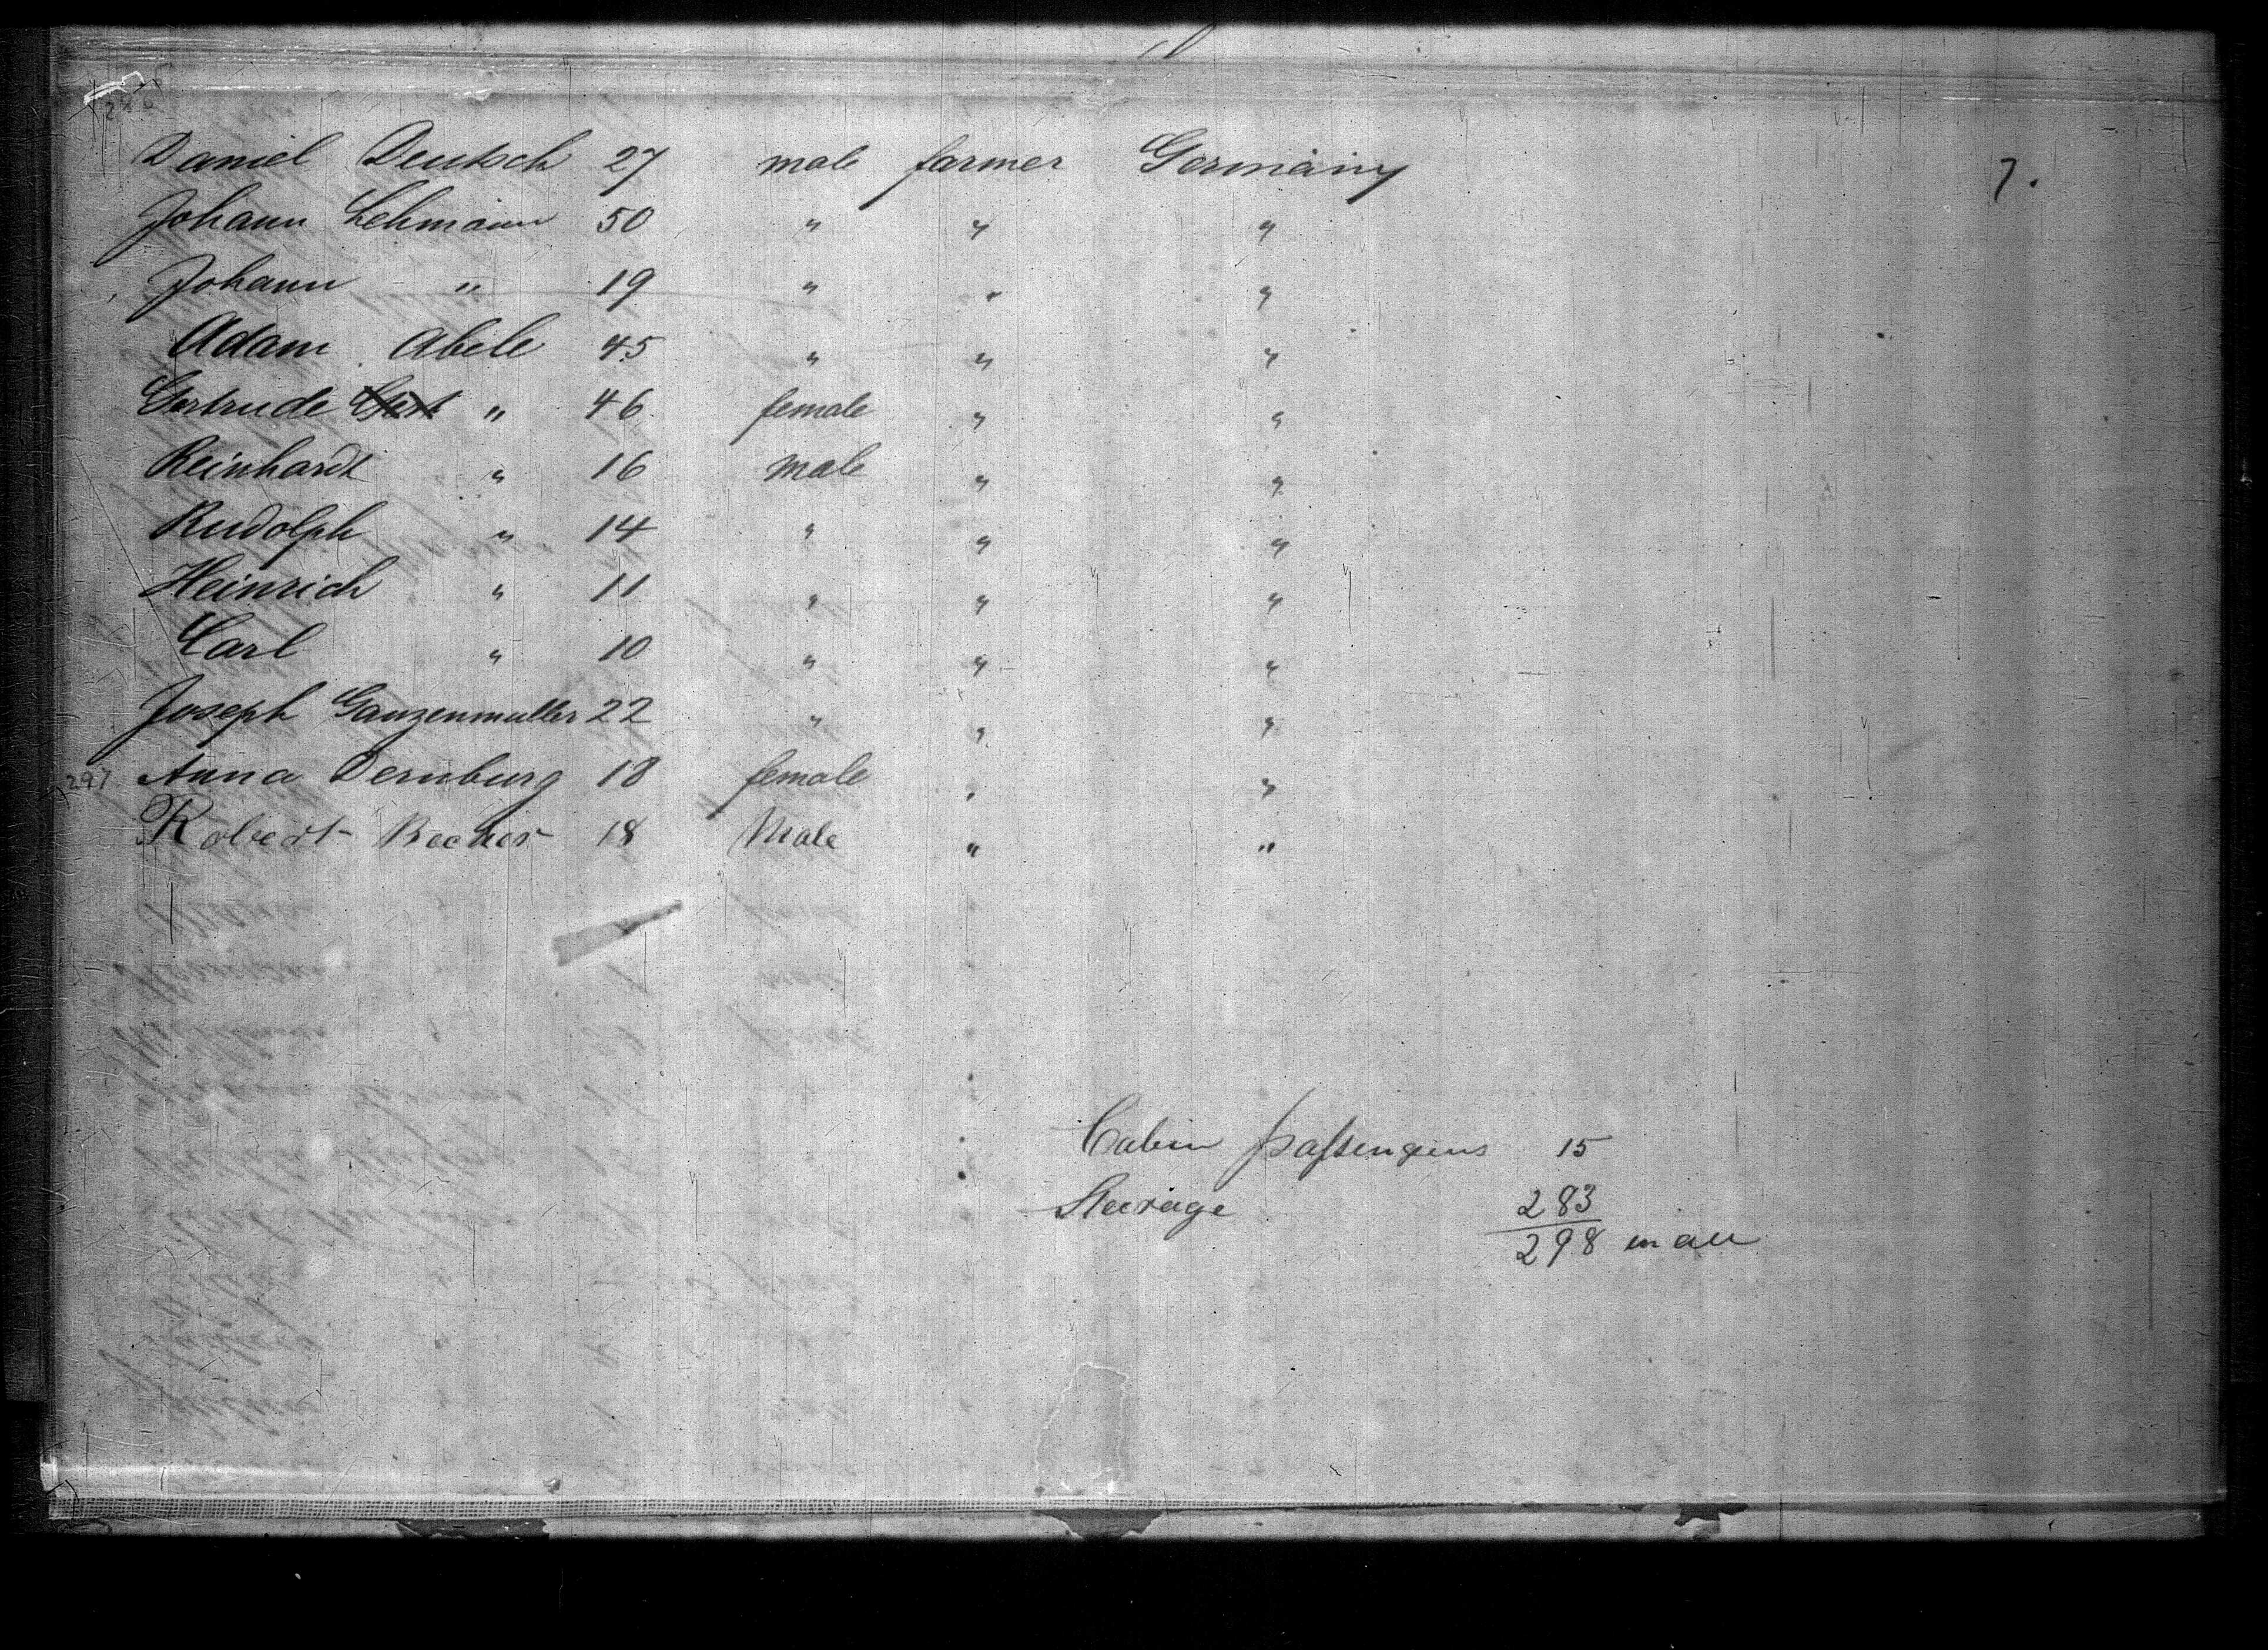 Daniel Deutsch 27 male farmer Germany 7.
Johann Lehmann 50 " " "
Johann " 19 " " "
Adam Abele 45 " " "
Gertrude " 46 female " "
Reinhardt " 16 male " "
Rudolph " 14 " " "
Heinrich " 11 " " "
Carl " 10 " " "
Joseph Ganzenmuller 22 " " "
297 Anna Dernburg 18 female " "
Robert 18 Male " "
Cabin passengers 15
Steerage 283
298 in all